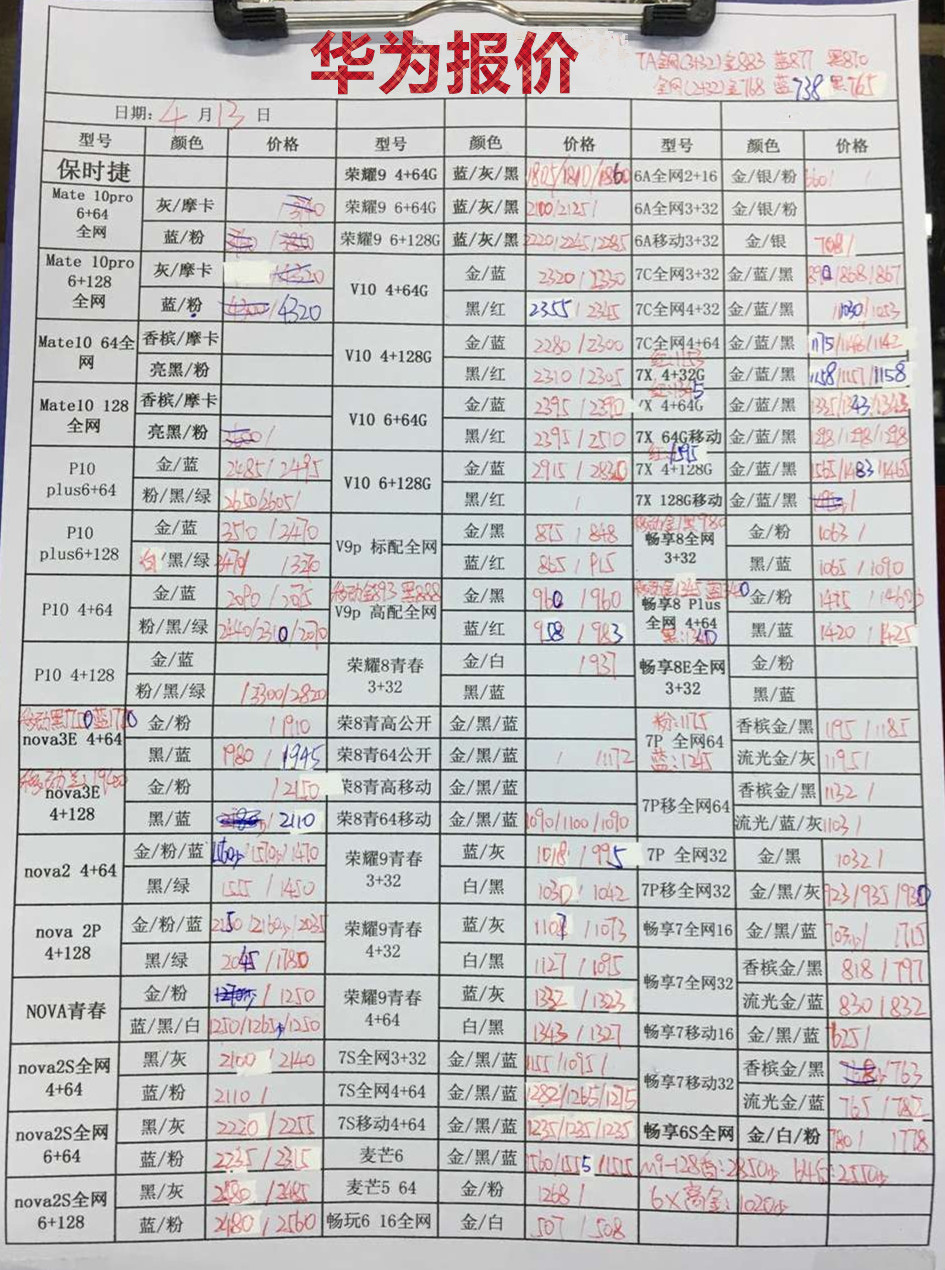 华为报价
TA全网(3+32)金883 蓝877 黑870
全网(2+32)金768 蓝738 黑765
日期: 4 月 13 日
型号 颜色 价格 型号 颜色 价格 型号 颜色 价格
保时捷 荣耀9 4+64G 蓝/灰/黑 1805/1810/1860 6A全网2+16 金/银/粉
Mate 10pro 6+64 全网 灰/摩卡 荣耀9 6+64G 蓝/灰/黑 2100/2125/ 6A全网3+32 金/银/粉
蓝/粉 荣耀9 6+128G 蓝/灰/黑 2220/2245/2285 6A移动3+32 金/银
Mate 10pro 6+128 全网 灰/摩卡 V10 4+64G 金/蓝 2320/2330 7C全网3+32 金/蓝/黑 890/868/867
蓝/粉 4300/4320 黑/红 2355/2345 7C全网4+32 金/蓝/黑 1030/1053
Mate10 64全网 香槟/摩卡 V10 4+128G 金/蓝 2280/2300 7C全网4+64 金/蓝/黑 1175/1148/1142
红:1153
亮黑/粉 黑/红 2310/2305 7X 4+32G 金/蓝/黑 1158/1151/1158
Mate10 128全网 香槟/摩卡 V10 6+64G 金/蓝 2395/2390 7X 4+64G 金/蓝/黑 1335/1343/1343
亮黑/粉 黑/红 2395/2510 7X 64G移动 金/蓝/黑 1298/1298/1298
红:1595
P10 plus6+64 金/蓝 2485/2495 V10 6+128G 金/蓝 2915/2830 7X 4+128G 金/蓝/黑 1565/1483/1465
粉/黑/绿 2650/2605/ 黑/红 / 7X 128G移动 金/蓝/黑
移动金/黑980
P10 plus6+128 金/蓝 3510/3470 V9p 标配全网 金/黑 875/848 畅享8全网 3+32 金/粉 1063/
黑/绿 3470/ 1320 蓝/红 865/915 黑/蓝 1065/1090
移动金893 黑888 移动金1345 蓝1340
P10 4+64 金/蓝 2090/2075 V9p 高配全网 金/黑 960/960 畅享8 Plus 全网 4+64 金/粉
黑:1340
粉/黑/绿 2440/2310/2070 蓝/红 958/983 黑/蓝 1420/1425
P10 4+128 金/蓝 荣耀8青春 3+32 金/白 /937 畅享8E全网 3+32 金/粉
粉/黑/绿 /3300/2820 黑/蓝 黑/蓝
移动黑1750蓝1710
nova3E 4+64 金/粉 /1910 荣8青高公开 金/黑/蓝 粉:1175 7P 全网64 蓝:1245 香槟金/黑 1195/1185
黑/蓝 1980/1945 荣8青64公开 金/黑/蓝 / /1172 流光金/灰 1195/
nova3E 4+128 金/粉 /2150 荣8青高移动 金/黑/蓝 7P移全网64 香槟金/黑 1132/
黑/蓝 2110 荣8青64移动 金/黑/蓝 1090/1100/1090 流光/蓝/灰 1103/
nova2 4+64 金/粉/蓝 荣耀9青春 3+32 蓝/灰 1018/995 7P 全网32 金/黑 1032/
黑/绿 1555/1450 白/黑 1030/1042 7P移全网32 金/黑/灰 923/935/930
nova 2P 4+128 金/粉/蓝 荣耀9青春 4+32 蓝/灰 1108/1073 畅享7全网16 金/黑/蓝
黑/绿 2045/1780 白/黑 1127/1095 畅享7全网32 香槟金/黑 818/797
NOVA青春 金/粉 /1250 荣耀9青春 4+64 蓝/灰 1332/1323 流光金/蓝 830/832
蓝/黑/白 1250/1265/1250 白/黑 1343/1327 畅享7移动16 金/黑/蓝 625/
nova2S全网 4+64 黑/灰 2100/2140 7S全网3+32 金/黑/蓝 1155/1095/ 畅享7移动32 香槟金/黑 /763
蓝/粉 2110/ 7S全网4+64 金/黑/蓝 1282/1265/1275 流光金/蓝 765/782
nova2S全网 6+64 黑/灰 2220/2255 7S移动4+64 金/黑/蓝 1235/1235/1235 畅享6S全网 金/白/粉 780/ 1778
蓝/粉 2235/2315 麦芒6 金/黑/蓝 1560/1555/1555
nova2S全网 6+128 黑/灰 2580/2485 麦芒5 64 金/粉 1268/
蓝/粉 2480/2560 畅玩6 16全网 金/白 507/508